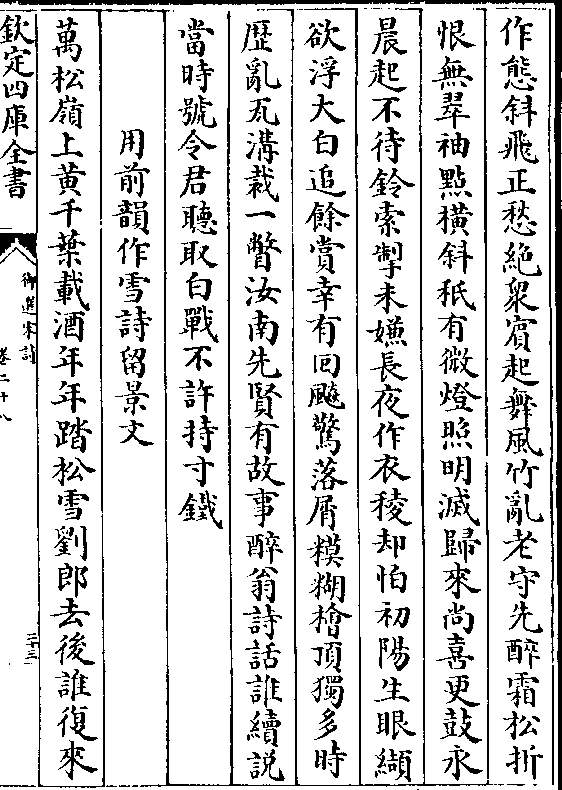 作態斜飛正愁絶衆賓起舞風竹亂老守先醉霜松折
恨無翠袖㸃横斜秪有微燈照明滅歸來尚喜更鼓永
晨起不待鈴索掣未嫌長夜作衣稜却怕初陽生眼纈
欲浮大白追餘賞幸有回飈驚落屑糢糊檜頂獨多時
歴亂瓦溝裁一瞥汝南先賢有故事醉翁詩話誰續説
當時號令君聽取白戰不許持寸鐵
用前韻作雪詩留景文
萬松嶺上黄千葉載酒年年踏松雪劉郎去後誰復來
欽定四庫全書
御選宋詩
卷二十八
三三